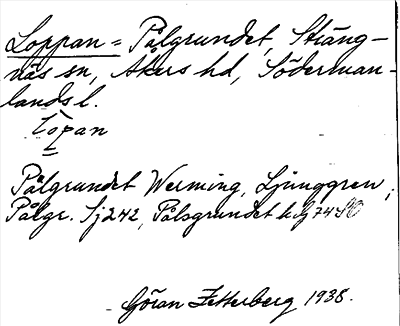 Loppan = Pålgrundet, Sträng-
näs sn, Åkers hd, Söderman-
lands l.
lopan
Pålgrundet Werming, Ljunggren;
Pålgr. Sj 242, Pålsgrundet
Göran Zetterberg 1938.